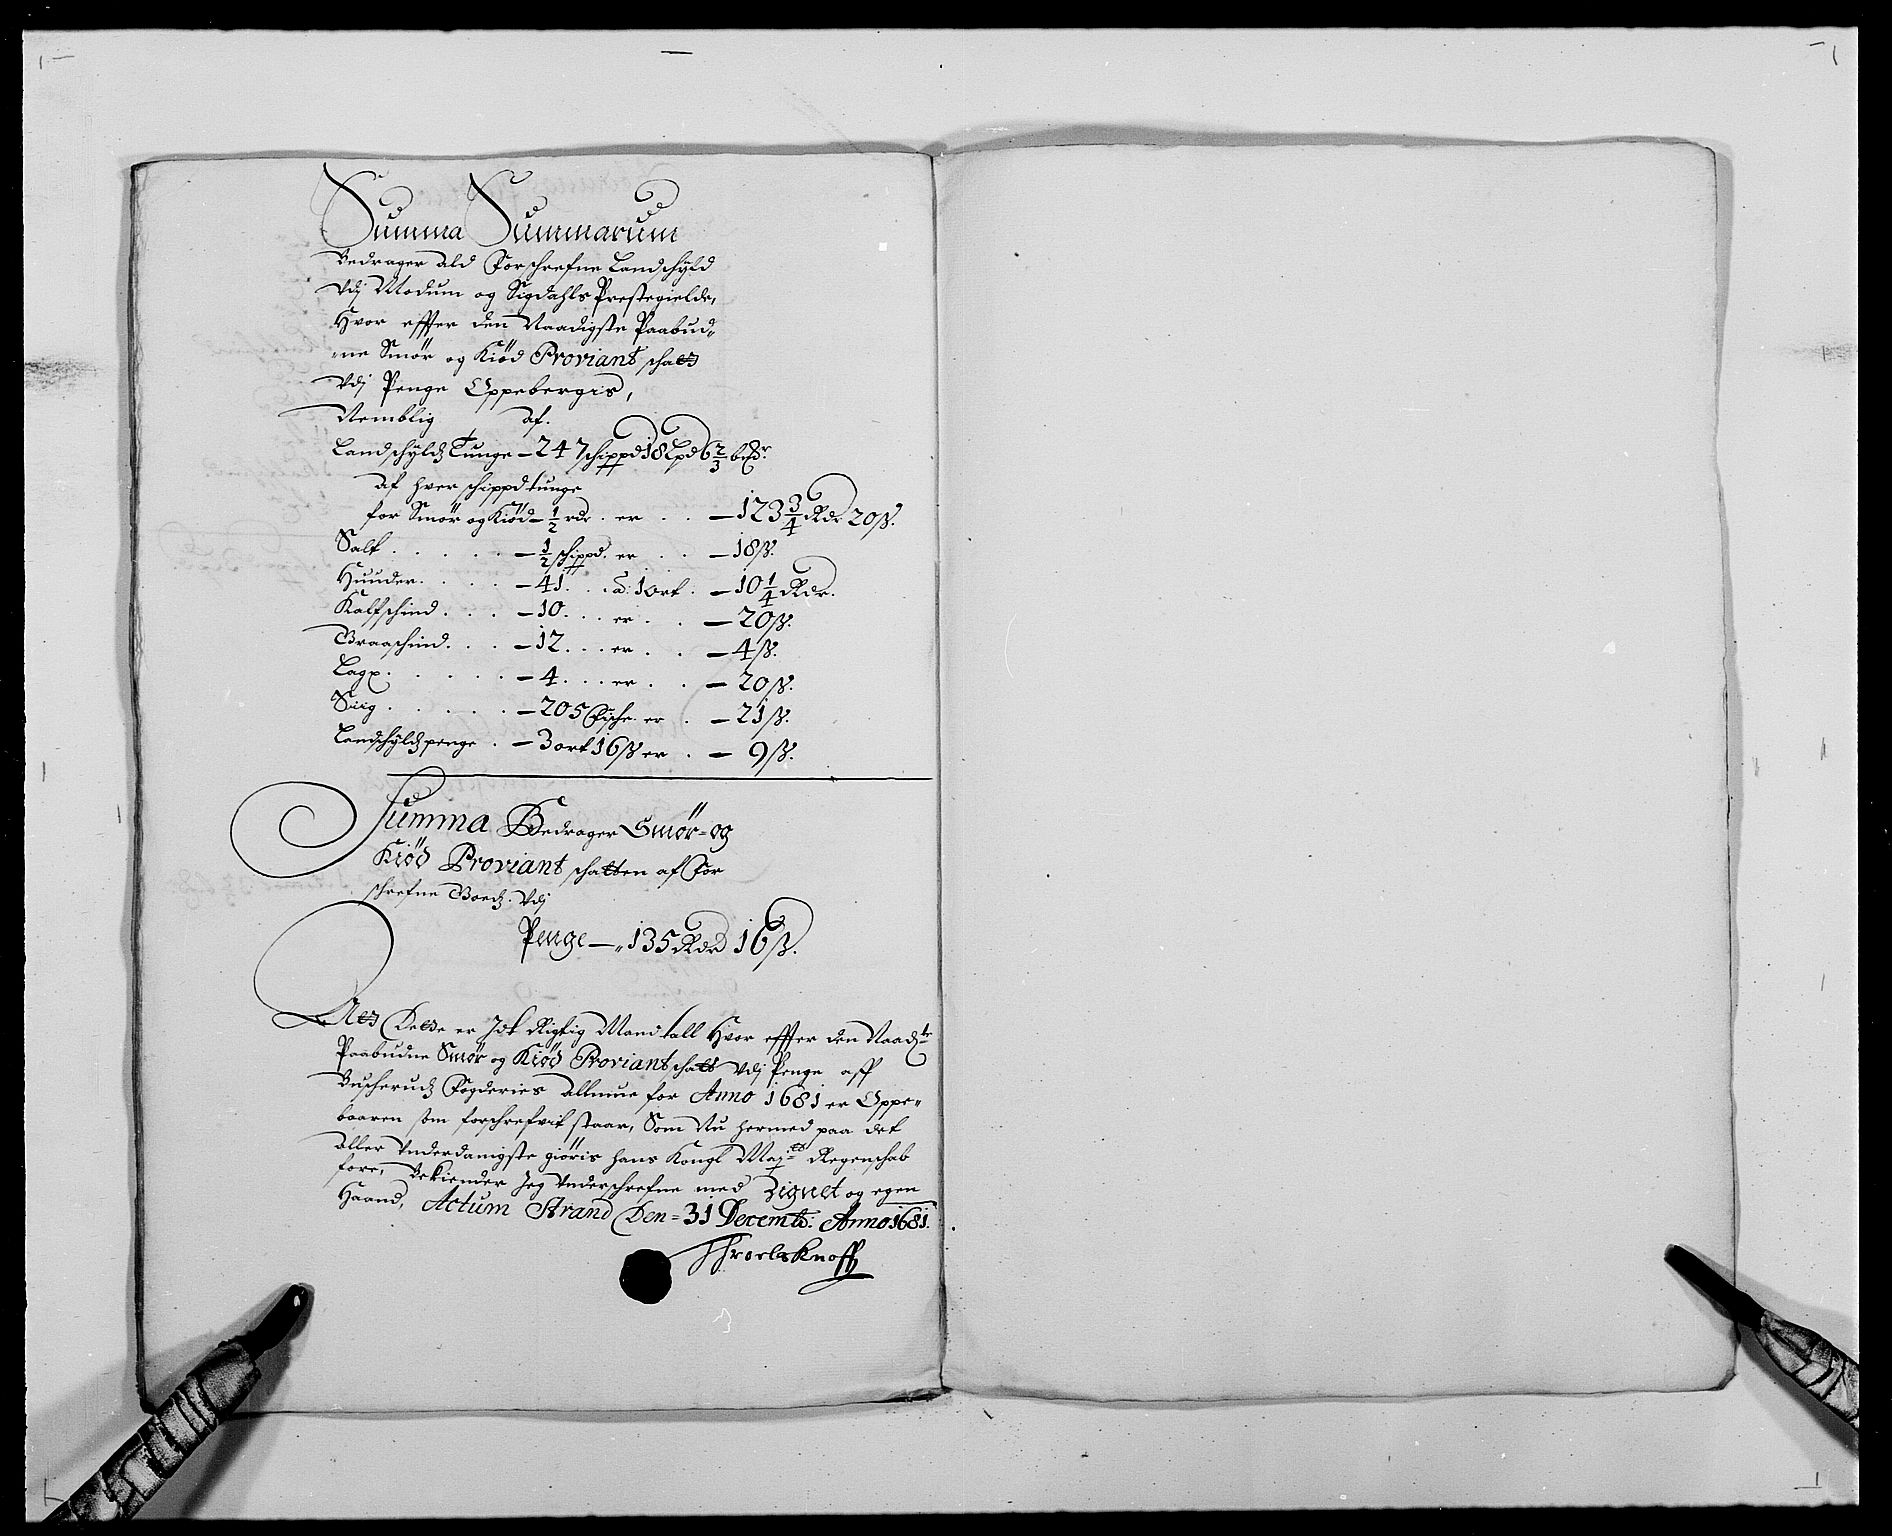 Summa Summarum
Bedrager ald Forschrefne Landschyld
Vdj Modum og Sigdahls Prestegielde,
Hvor effter den Naadigste Paabud-
ne Smør og Kiød Proviant schatt
Vdj Penge Oppebergis,
Nemblig af.
Landschyldz Tunge - 247 schippd 18 Lpd 6 2/3 bißr
af hver schippd tunge
for Smør og Kiød - 1/2 rdr. er . . - 123 3/4 Rdr 20 ß.
Salt . . . . . - 1/2 schippd. er . . - 18 ß.
Huuder . . . . - 41 . . . a: 1 ort . - 10 1/4 Rdr.
Kalfschind . . . - 10 . . . er . . - 20 ß.
Graaschind . . . - 12 . . . er . . - 4 ß.
Lagx . . . . . - 4 . . . er . . - 20 ß.
Siig . . . . . - 205 Fische er . - 21 ß.
Landschyldz penge . - 3 ort 16 ß er . - 9 ß.
Summa Bedrager Smør- og
Kiød Proviant schatten af For
schrefne Boech. Vdj
Penge - 135 Rdr 16 ß.
At Dette er Jdt Rigtig Mandtall Hvor effter den Naadste
Paabudne Smør og Kiød Proviant schatt Vdj Penge aff
Buscheruds Fogderies Allmue for Anno 1681 er Oppe-
baaren som forschrefvit staar, Som Nu hermed paa det
Aller Vnderdanigste giøris hans Kongl Mayts Regenschab
fore, Bekiender Jeg Vnderschrefne med Zignet og egen
Haand, Actum Strand Den = 31 Decemb: Anno 1681.
Throels Knoff